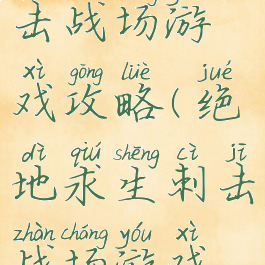 击战场游
xì gōng lüè jué
戏攻略(绝
dì qiú shēng cì jī
地求生刺击
zhàn chǎng yóu xì
战场游戏